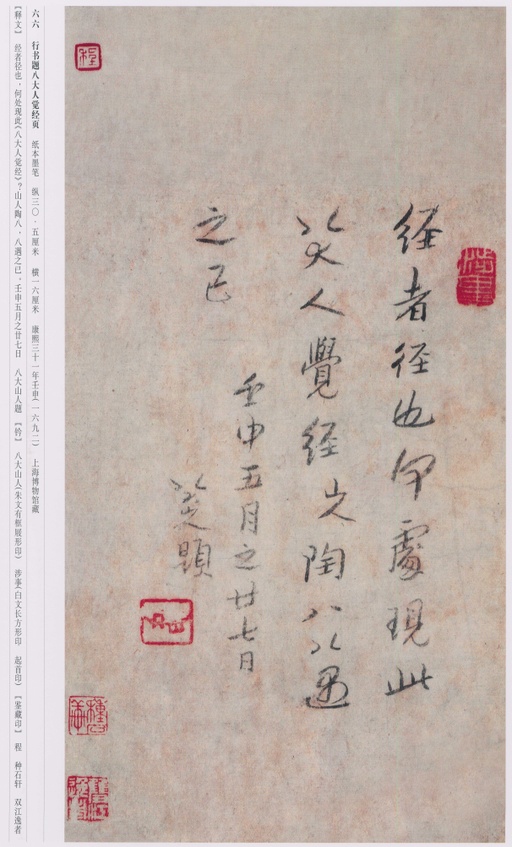 涉事
經者徑也何處現此
八大人覺經山人陶八八遇
之已
壬申五月之廿七日
八大山人題
八大山人
程
六六 行书题八大人觉经页 纸本墨笔 纵三〇·五厘米 横一六厘米 康熙三十一年壬申(一六九二) 上海博物馆藏
【释文】 经者径也，何处现此《八大人觉经》？山人陶八、八遇之已。壬申五月之廿七日 八大山人题 【钤】 八大山人(朱文有框屐形印) 涉事(白文长方形印 起首印) 【鉴藏印】 程 种石轩 双江逸者